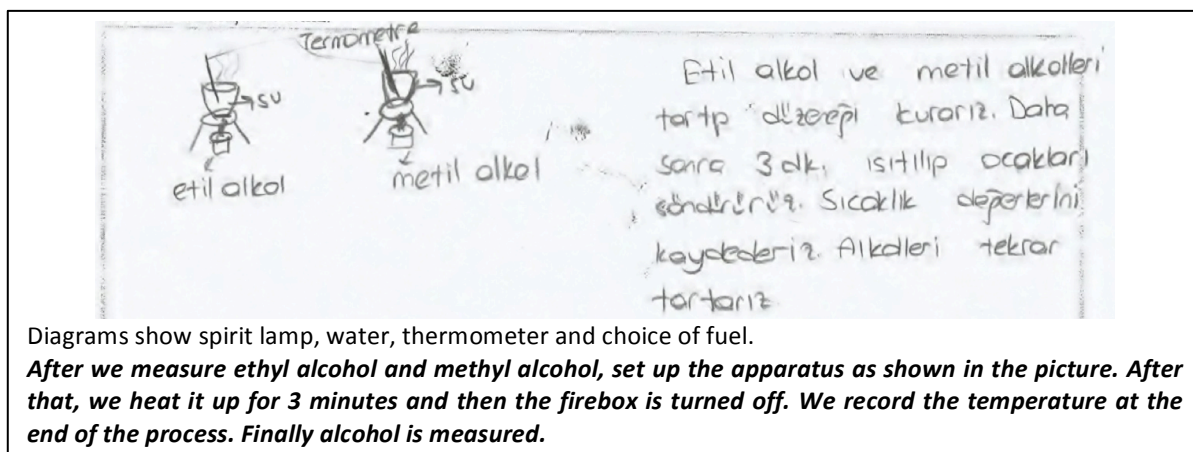 Termometre
su
su
etil alkol
metil alkol
Etil alkol ve metil alkolleri
tartıp düzeneği kurarız. Daha
sonra 3 dk. ısıtılıp ocakları
söndürürüz. Sıcaklık değerlerini
kaydederiz. Alkolleri tekrar
tartarız
Diagrams show spirit lamp, water, thermometer and choice of fuel.
After we measure ethyl alcohol and methyl alcohol, set up the apparatus as shown in the picture. After
that, we heat it up for 3 minutes and then the firebox is turned off. We record the temperature at the
end of the process. Finally alcohol is measured.